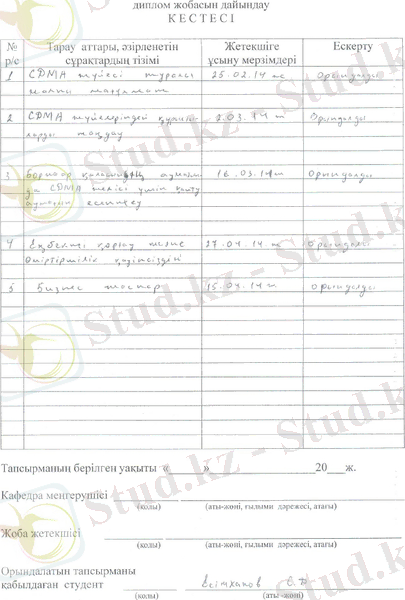 диплом жобасын дайындау
К Е С Т Е С І
№ р/с
Тарау аттары, әзірленетін сұрақтардың тізімі
Жетекшіге ұсыну мерзімдері
Ескерту
1 CDMA жүйесі туралы 25.02.14 ж Орындалды
жалпы мағлұмат
2 CDMA жүйелеріндегі .03.14 Орындалды
таңдау
3 қаласының 16.03.14 Орындалды
да CDMA желісі үшін қамту
аумағын есептеу
4 Еңбекті қорғау және 27.04.14 ж Орындалды
өміртіршілік қауіпсіздігі
5 Бизнес жоспар 15.04.14 Орындалды
Stud.kz - Stud.kz
Stud.kz - Stud.kz
Stud.kz - Stud.kz
Тапсырманың берілген уақыты «______»____________________20___ж.
Кафедра меңгерушісі
(қолы) (аты-жөні, ғылыми дәрежесі, атағы)
Жоба жетекшісі
(қолы) (аты-жөні, ғылыми дәрежесі, атағы)
Орындалатын тапсырманы
қабылдаған студент
(қолы) (аты -жөні)